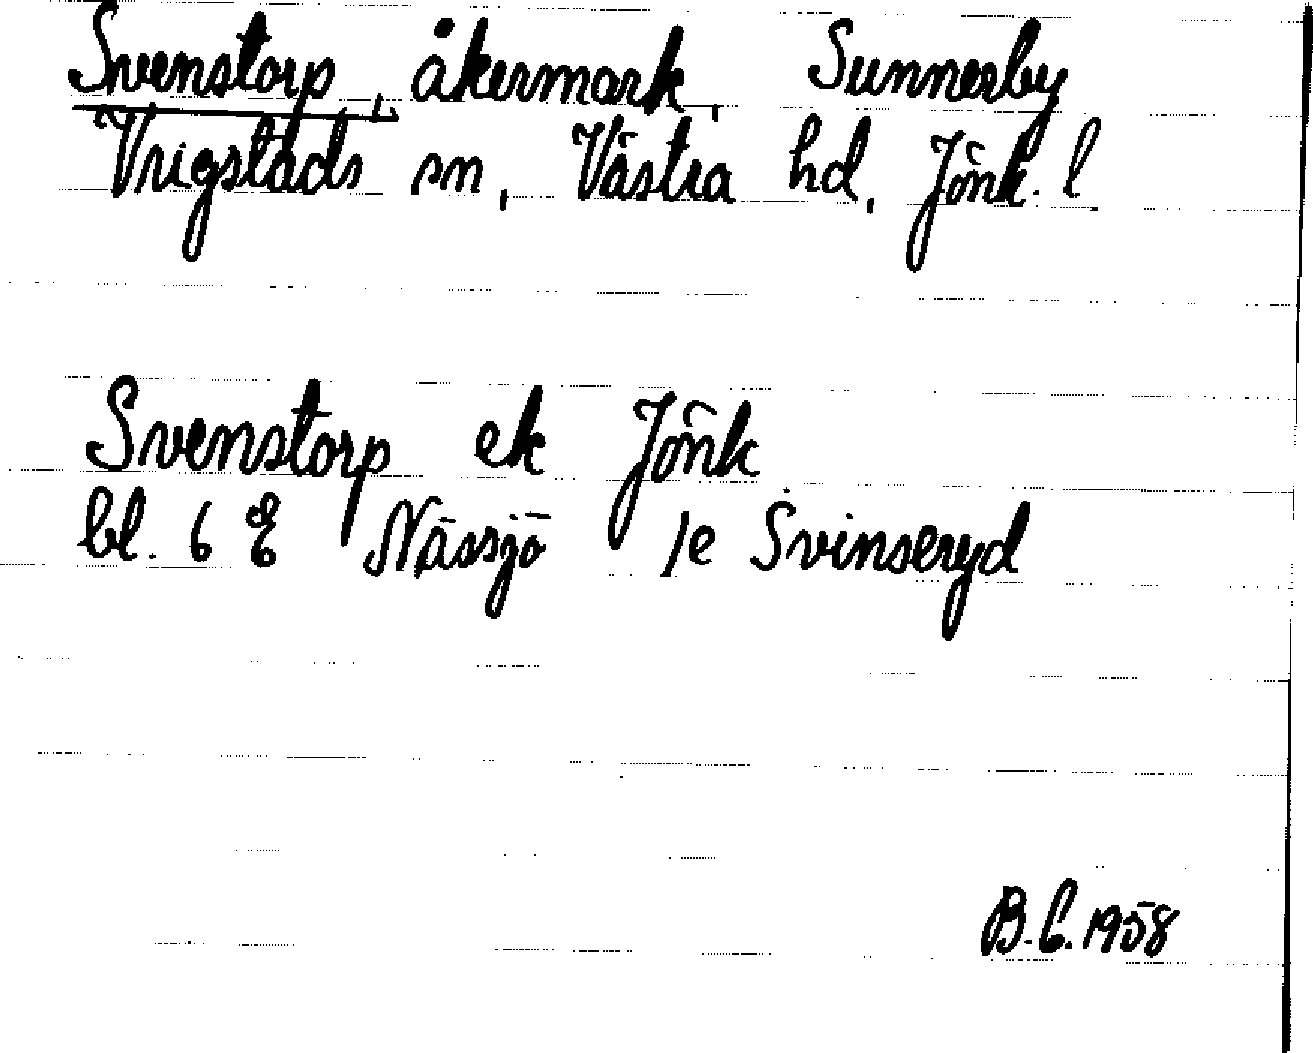 Svenstorp, åkermark, Sunnerby
Vrigstads sn, Västra hd, Jönk. l
Svenstorp ek Jönk
bl. 6 E Nässjö 1e Svinseryd
B.C. 1958